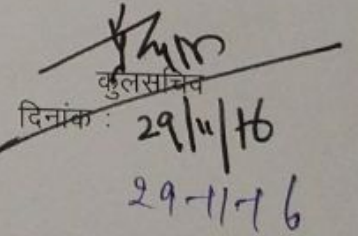 कुलसचिव
दिनांक : 29/11/16
29-11-16